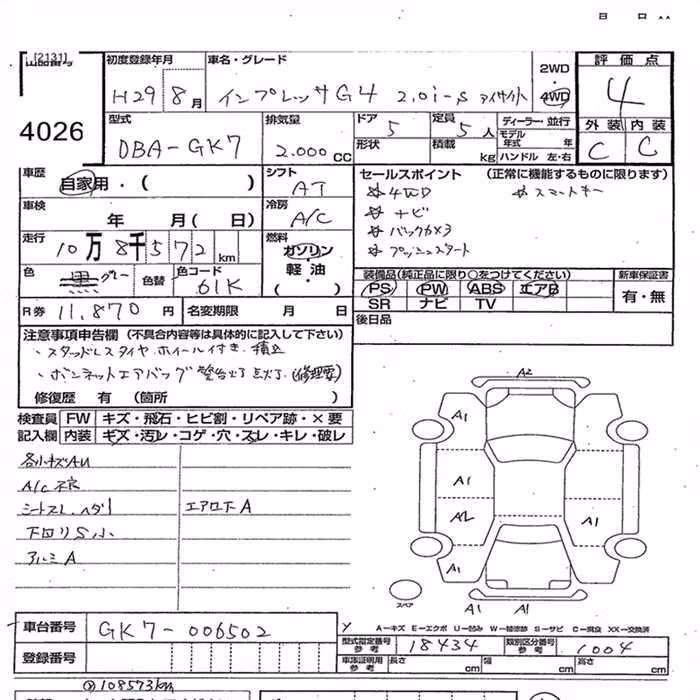 [2131]
4026
初度登録年月
H29 8月
車名・グレード
インプレッサG4 2.0i-s アイサイト
2WD・4WD
評価点
4
外装 内装
C C
型式
DBA-GK7
排気量
2.000 CC
ドア 5
定員 5人
ディーラー・並行
形状
積載 kg
モデル年式 年
ハンドル 左・右
車歴
自家用・( )
シフト
AT
車検
年 月(日)
冷房
A/C
走行
10万8千572km
燃料
ガソリン・軽油
( )
色
黒 グレー
色替
色コード
61K
R券 11,870円
名変期限 月 日
セールスポイント (正常に機能するものに限ります)
☆4WD ☆スマートキー
☆ナビ
☆バックカメラ
☆プッシュスタート
装備品(純正品に限り○をつけてください)
PS PW ABS エアB
SR ナビ TV
新車保証書
有・無
後日品
注意事項申告欄(不具合内容等は具体的に記入して下さい)
・スタッドレスタイヤ・ホイール付き・積込
・ボンネットエアバッグ警告灯点灯.(修理要)
修復歴 有(箇所 )
検査員 FW キズ・飛石・ヒビ割・リペア跡・×要
記入欄 内装 キズ・汚レ・コゲ・穴・スレ・キレ・破レ
各小キズAU
A/C不良
シートスレ.ヘタリ エアロ下A
下回りS小
アルミA
A2
A1
A1
A2 A1
A1
A1 A1
スペア
A-キズ E-エクボ U-凹み W-補修跡 S-サビ C-腐食 XX-交換済
車台番号 GK7-006502
登録番号
型式指定番号 参考 18434
類別区分番号 参考 1004
車庫証明用 参考 長さ cm 幅 cm 高さ cm
108573km